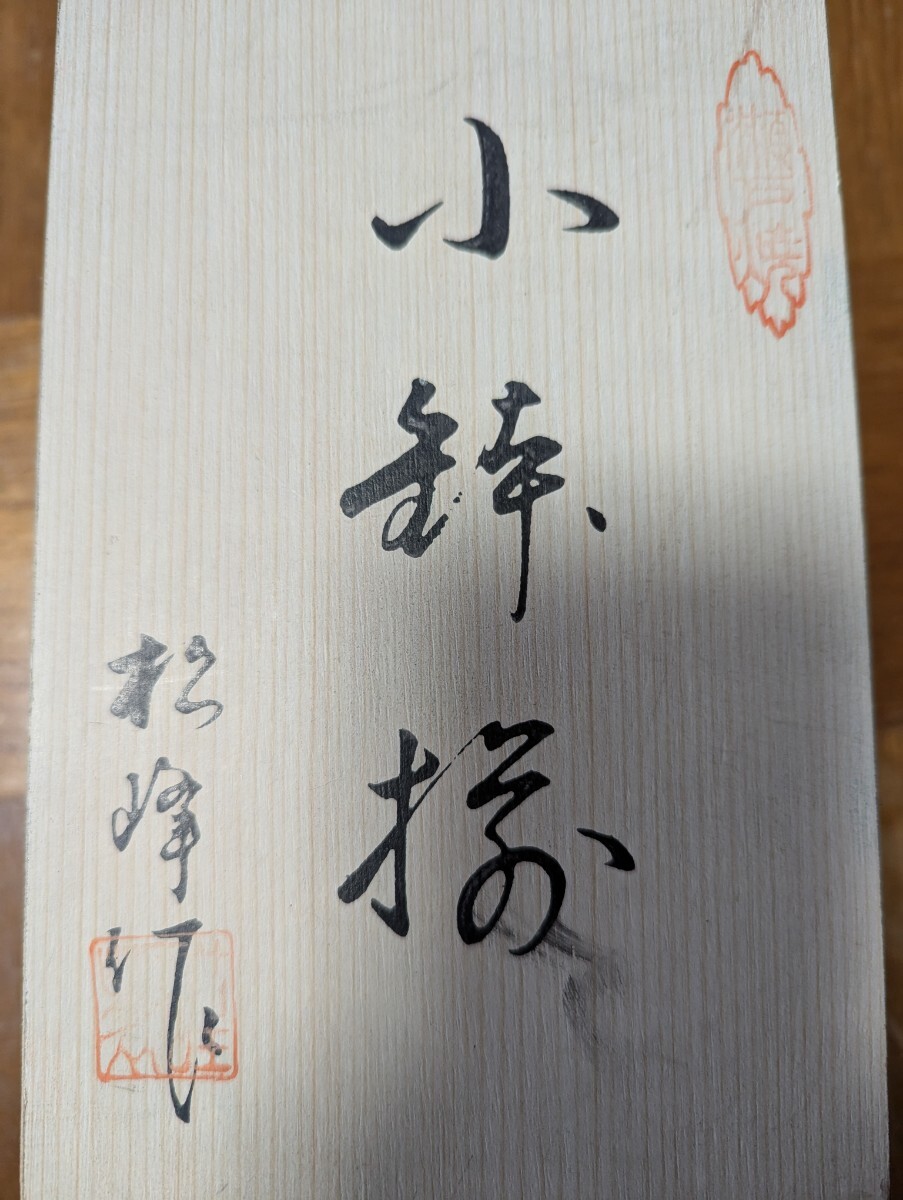 小鉢揃
松峰作